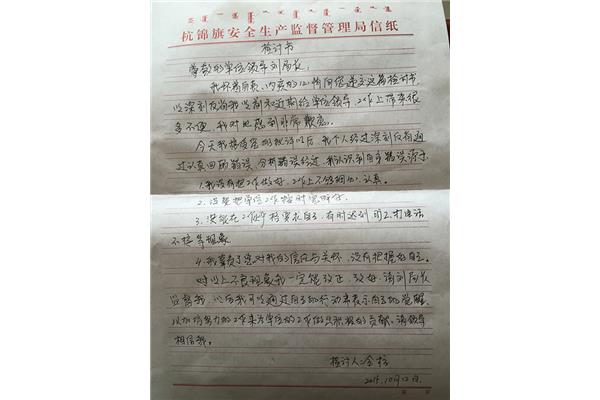 杭锦旗安全生产监督管理局信纸
检讨书
尊敬的单位领导刘局长:
我怀着自责、内疚的心情向您递交这篇检讨书,
以深刻反省我 近期给单位领导、工作上带来很
多不便,我对此感到非常歉意。
今天我接受您的批评以后,我个人经过深刻反省通
过认真回顾错误、分析错误经过,我认识到自己错误源于
1.我没有把工作做好,工作上不够细心、认真。
2.没有把单位工作按时完成好
3.没能在工作中 要求自己,有时迟到 打电话
不接等现象
4.我辜负了您对我的信任与关怀,没有把握好自己。
对以上不良现象我一定能改正,改好,请刘局长
监督我,以后我可以通过自己的行动来表示自己的觉醒,
以加倍努力的工作来为单位的工作做出积极的贡献,请领导
相信我。
检讨人:
10月12日